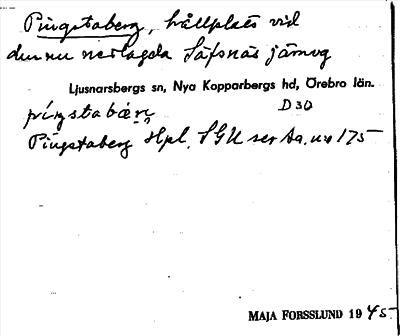 Pingstaberg, hållplats vid
den nu nerlagda Säfsnäs järnvg
Ljusnarsbergs sn, Nya Kopparbergs hd, Örebro län.
D 30
píngstabærj
Pingstaberg Hpl. SGU ser Aa. nr 175
MAJA FORSSLUND 1945